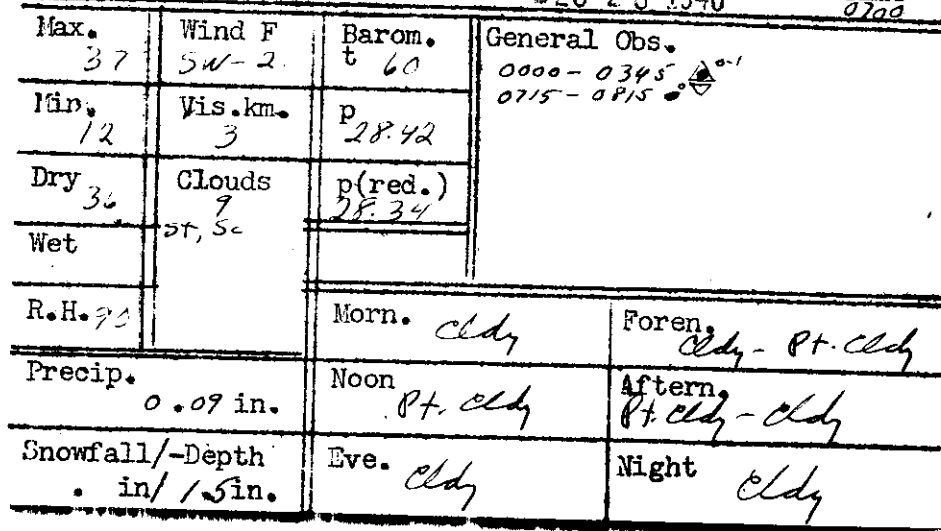 0700
Max. 37
Wind F SW-2.
Barom. t 60
General Obs.
0000 - 0345 0-1
0715 - 0815
Min. 12
Vis.km. 3
p 28.42
Dry
Clouds 9
St, Sc
p(red.) 28.34
Wet
R.H.
Morn. Cldy
Foren. Cldy - Pt. Cldy
Precip. 0.09 in.
Noon Pt. Cldy
Aftern. Pt. Cldy - Cldy
Snowfall/-Depth
. in/ 1.5in.
Eve. Cldy
Night Cldy